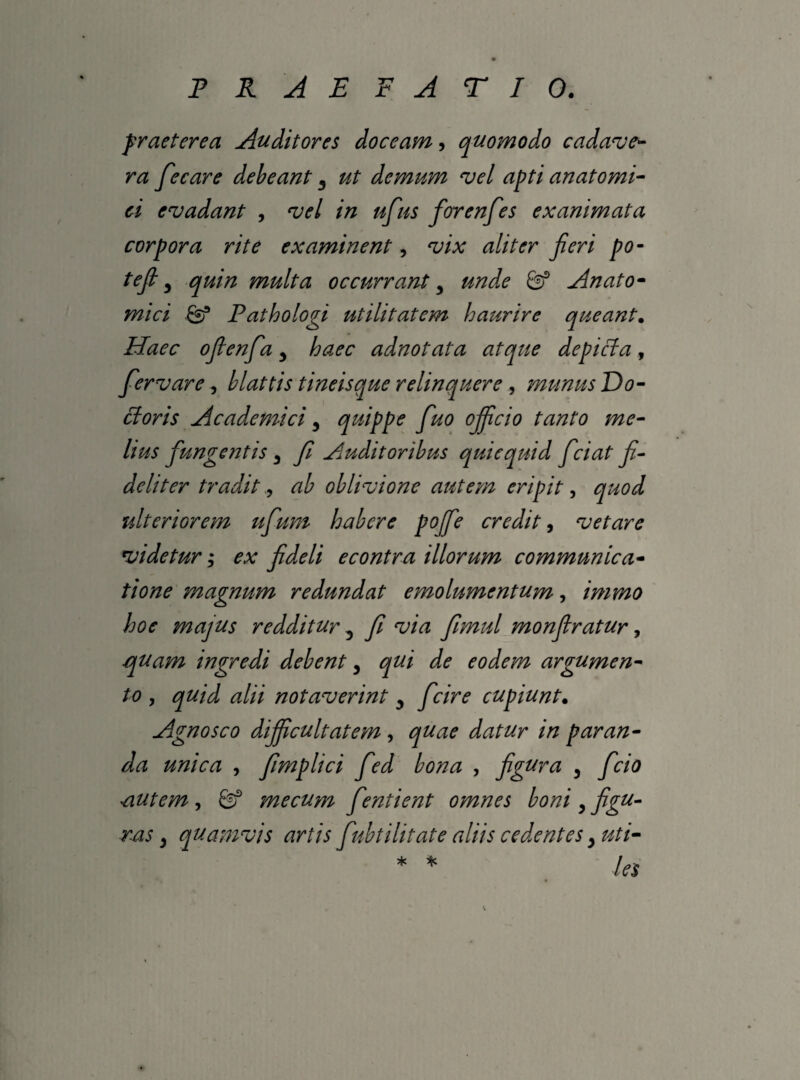 PRAEFATIO.
praeterea Auditores doceam, quomodo cadave-
ra ſecare debeant, ut demum vel apti anatomi-
ci evadant , vel in uſus forenſes exanimata
corpora rite examinent, vix aliter fieri po-
teſt, quin multa occurrant, unde & Anato-
mici & Pathologi utilitatem haurire queant.
Haec oſtenſa, haec adnotata atque depicta,
ſervare, blattis tineisque relinquere, munus Do-
ctoris Academici, quippe ſuo officio tanto me-
lius fungentis, ſi Auditoribus quicquid ſciat fi-
deliter tradit, ab oblivione autem eripit, quod
ulteriorem uſum habere poſſe credit, vetare
videtur; ex fideli econtra illorum communica-
tione magnum redundat emolumentum, immo
hoc majus redditur, ſi via ſimul monſtratur,
quam ingredi debent, qui de eodem argumen-
to, quid alii notaverint, ſcire cupiunt.
Agnosco difficultatem, quae datur in paran-
da unica , ſimplici ſed bona , figura , ſcio
autem, & mecum ſentient omnes boni, figu-
ras, quamvis artis ſubtilitate aliis cedentes, uti-
* * les